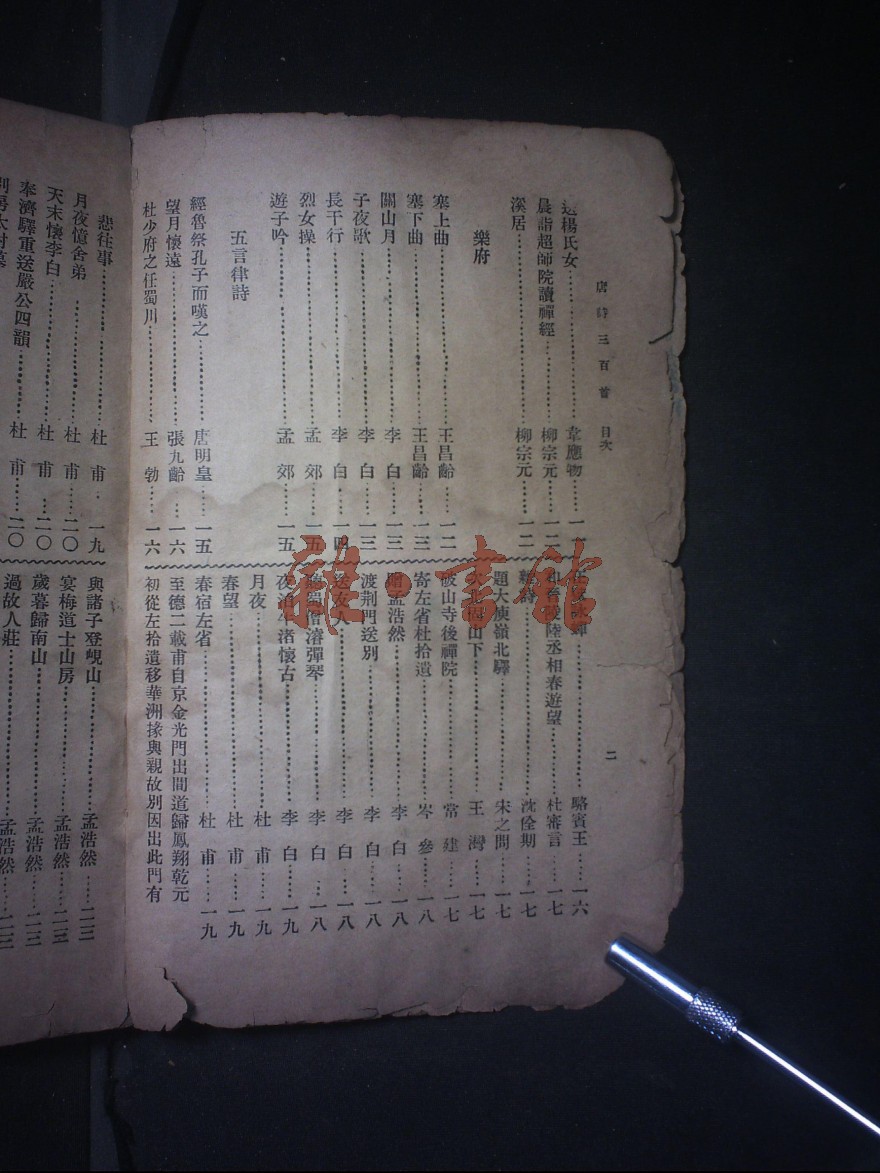 唐詩三百首 目次
二
送楊氏女 韋應物 一二
晨詣超師院讀禪經 柳宗元 一二
溪居 柳宗元 一二
樂府
塞上曲 王昌齡 一二
塞下曲 王昌齡 一三
關山月 李白 一三
子夜歌 李白 一三
長干行 李白 一四
烈女操 孟郊 一五
遊子吟 孟郊 一五
五言律詩
經魯祭孔子而嘆之 唐明皇 一五
望月懷遠 張九齡 一六
杜少府之任蜀川 王勃 一六
駱賓王 一六
陵陸丞相春遊望 杜審言 一七
雜詩 沈佺期 一七
題大庾嶺北驛 宋之間 一七
次北固山下 王灣 一七
破山寺後禪院 常建 一七
寄左省杜拾遺 岑參 一八
贈孟浩然 李白 一八
渡荆門送別 李白 一八
送友人 李白 一八
聽蜀僧濬彈琴 李白 一八
夜泊牛渚懷古 李白 一九
月夜 杜甫 一九
春望 杜甫 一九
春宿左省 杜甫 一九
至德二載甫自京金光門出間道歸鳳翔乾元
初從左拾遺移華洲掾與親故別因出此門有
悲往事 杜甫 一九
月夜憶舍弟 杜甫 二〇
天末懷李白 杜甫 二〇
奉濟驛重送嚴公四韻 杜甫 二〇
與諸子登峴山 孟浩然 二三
宴梅道士山房 孟浩然 二三
歲暮歸南山 孟浩然 二三
過故人莊 孟浩然 二三
雜·書館